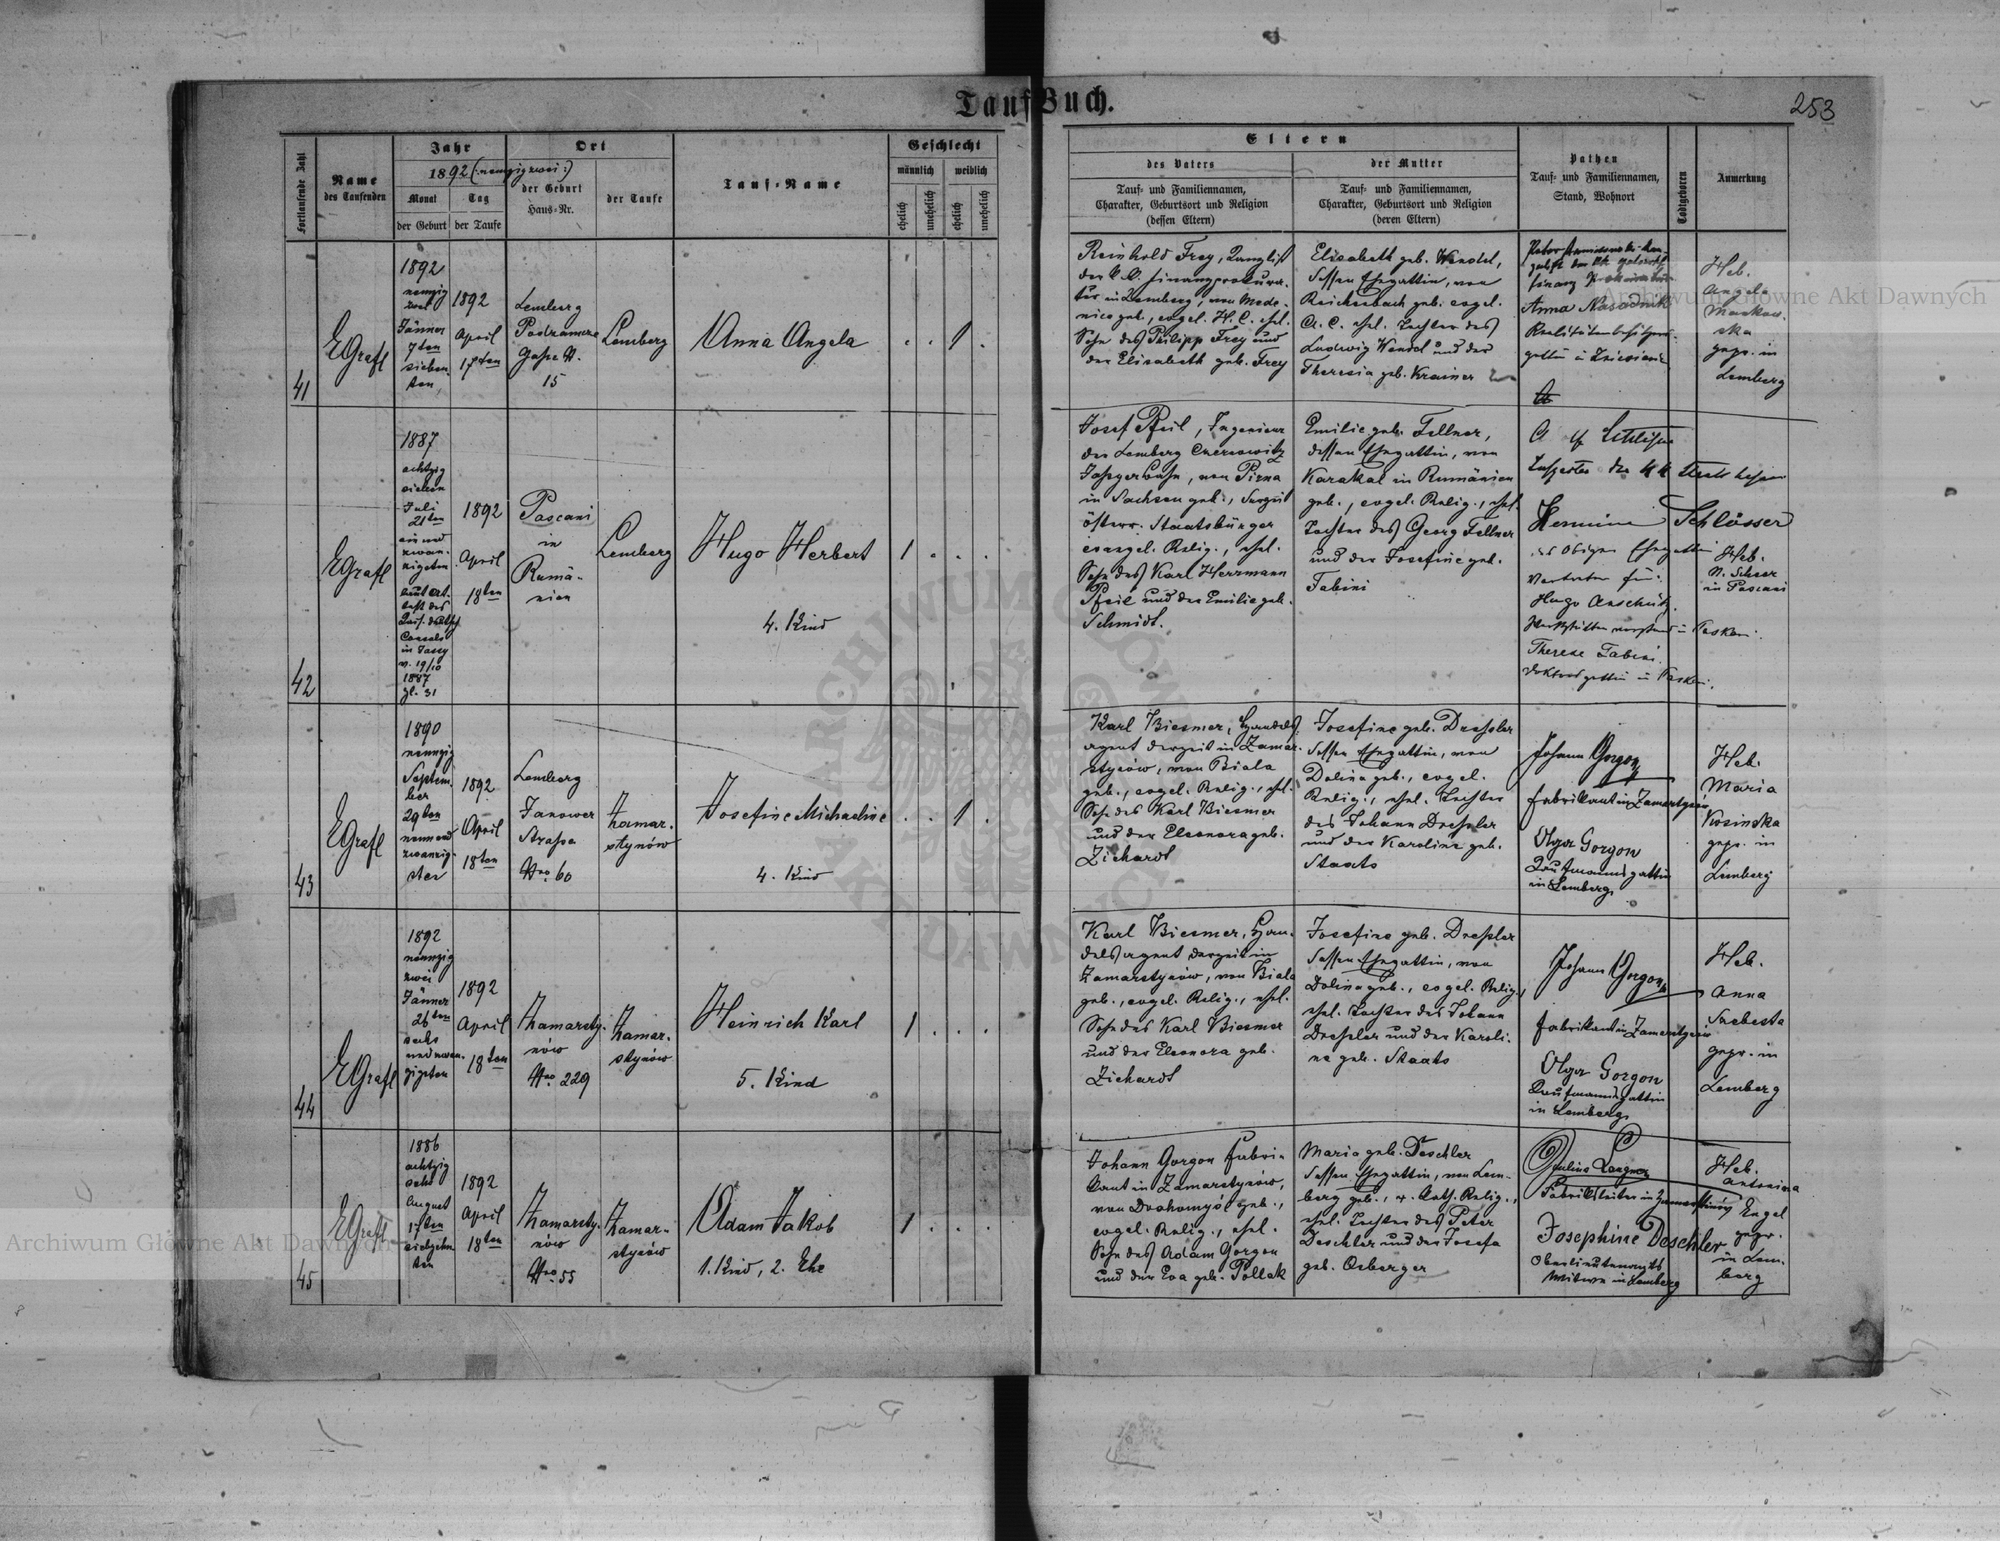 Tauf Buch.
253
Fortlaufende Zahl
Name
des Taufenden
Jahr
1892 (: neunzig zwei :)
Monat
Tag
der Geburt
der Taufe
Ort
der Geburt
Haus-Nr.
der Taufe
Tauf-Name
Geschlecht
männlich
weiblich
ehelich
unehelich
ehelich
unehelich
Eltern
des Vaters
der Mutter
Tauf- und Familiennamen,
Charakter, Geburtsort und Religion
(dessen Eltern)
Tauf- und Familiennamen,
Charakter, Geburtsort und Religion
(deren Eltern)
Pathen
Tauf- und Familiennamen,
Stand, Wohnort
Todtgeboren
Anmerkung
41
EGrafl
1892
neunzig
zwei
Jänner
7ten
sieben-
ten
1892
April
17ten
Lemberg
Podzamcze
Gasse N.
15
Lemberg
Anna Angela
. . 1 .
Reinhold Frey, Kanzlist
der k.k. Finanzprokura-
tur in Lemberg, von Mede-
nice geb., evgel. H. C. ehel.
Sohn des Philipp Frey und
der Elisabeth geb. Frey
Elisabeth geb. Wendel,
dessen Ehegattin, von
Reichenbach geb. evgel.
A. C. ehel. Tochter des
Ludwig Wendel und der
Theresia geb. Krainer
Anna Nasadnik
Realitätenbesitzers-
gattin
Heb.
Angela
gepr. in
Lemberg
42
EGrafl
1887
achtzig
sieben
Juli
21ten
ein und
zwan-
zigsten
laut At-
test des
Consuls
in Jassy
v. 19/10
1887
zl. 31
1892
April
18ten
Pascani
in
Rumä-
nien
Lemberg
Hugo Herbert
4. Kind
1 . . .
Josef Pfeil, Ingenieur
der Lemberg Czernowitz
Jassyerbahn, von Pirna
in Sachsen geb., derzeit
österr. Staatsbürger
evangel. Relig., ehel.
Sohn des Karl Herrmann
Pfeil und der Emilie geb.
Schmidt.
Emilie geb. Fellner,
dessen Ehegattin, von
Karakal in Rumänien
geb., evgel. Relig., ehel.
Tochter des Georg Fellner
und der Josefine geb.
Fabini
Hermine Schlosser
des Obigen Ehegattin
Vertreter für:
Hugo Anschütz
Therese Fabini
Heb.
N. Scheer
in Pascani
43
EGrafl
1890
neunzig
Septem-
ber
29ten
neun und
zwanzig-
sten
1892
April
18ten
Lemberg
Janower
Strasse
Nro 60
Zamar-
stynów
Josefine Michaeline
4. Kind
. . 1 .
Karl Biesmer, Handels-
agent derzeit in Zamar-
stynów, von Biala
geb., evgel. Relig., ehel.
Sohn des Karl Biesmer
und der Eleonora geb.
Zichardt
Josefine geb. Dressler
dessen Ehegattin, von
Dolina geb., evgel.
Relig., ehel. Tochter
des Johann Dressler
und der Karoline geb.
Staats
Johann Gorgon
Fabrikant in Zamarstynów
Olga Gorgon
Kaufmannsgattin
in Lemberg
Heb.
Maria
Kosinska
gepr. in
Lemberg
44
EGrafl
1892
neunzig
zwei
Jänner
26ten
sechs
und zwan-
zigsten
1892
April
18ten
Zamarsty-
nów
Nro 229
Zamar-
stynów
Heinrich Karl
5. Kind
1 . . .
Karl Biesmer, Han-
delsagent derzeit in
Zamarstynów, von Biala
geb., evgel. Relig., ehel.
Sohn des Karl Biesmer
und der Eleonora geb.
Zichardt
Josefine geb. Dressler
dessen Ehegattin, von
Dolina geb., evgel. Relig.,
ehel. Tochter des Johann
Dressler und der Karoli-
ne geb. Staats
Johann Gorgon
Fabrikant in Zamarstynów
Olga Gorgon
Kaufmannsgattin
in Lemberg
Heb.
Anna
gepr. in
Lemberg
45
EGrafl
1886
achtzig
sechs
August
17ten
siebzehn-
ten
1892
April
18ten
Zamarsty-
nów
Nro 55
Zamar-
stynów
Adam Jakob
1. Kind, 2. Ehe
1 . . .
Johann Gorgon Fabri-
kant in Zamarstynów,
von Drohomyśl geb.,
evgel. Relig., ehel.
Sohn des Adam Gorgon
und der Eva geb. Pollak
Maria geb. Deschler
dessen Ehegattin, von Lem-
berg geb., r. kath. Relig.,
ehel. Tochter des Peter
Deschler und der Josefa
geb. Osberger
Julius Langner
Fabriksleiter in Zamarstinów
Josephine Deschler
Oberlieutenants
Witwe in Lemberg
Heb.
Antonina
Engel
gepr.
in Lem-
berg
Archiwum Główne Akt Dawnych
Archiwum Główne Akt Dawnych
ARCHIWUM GŁÓWNE AKT DAWNYCH